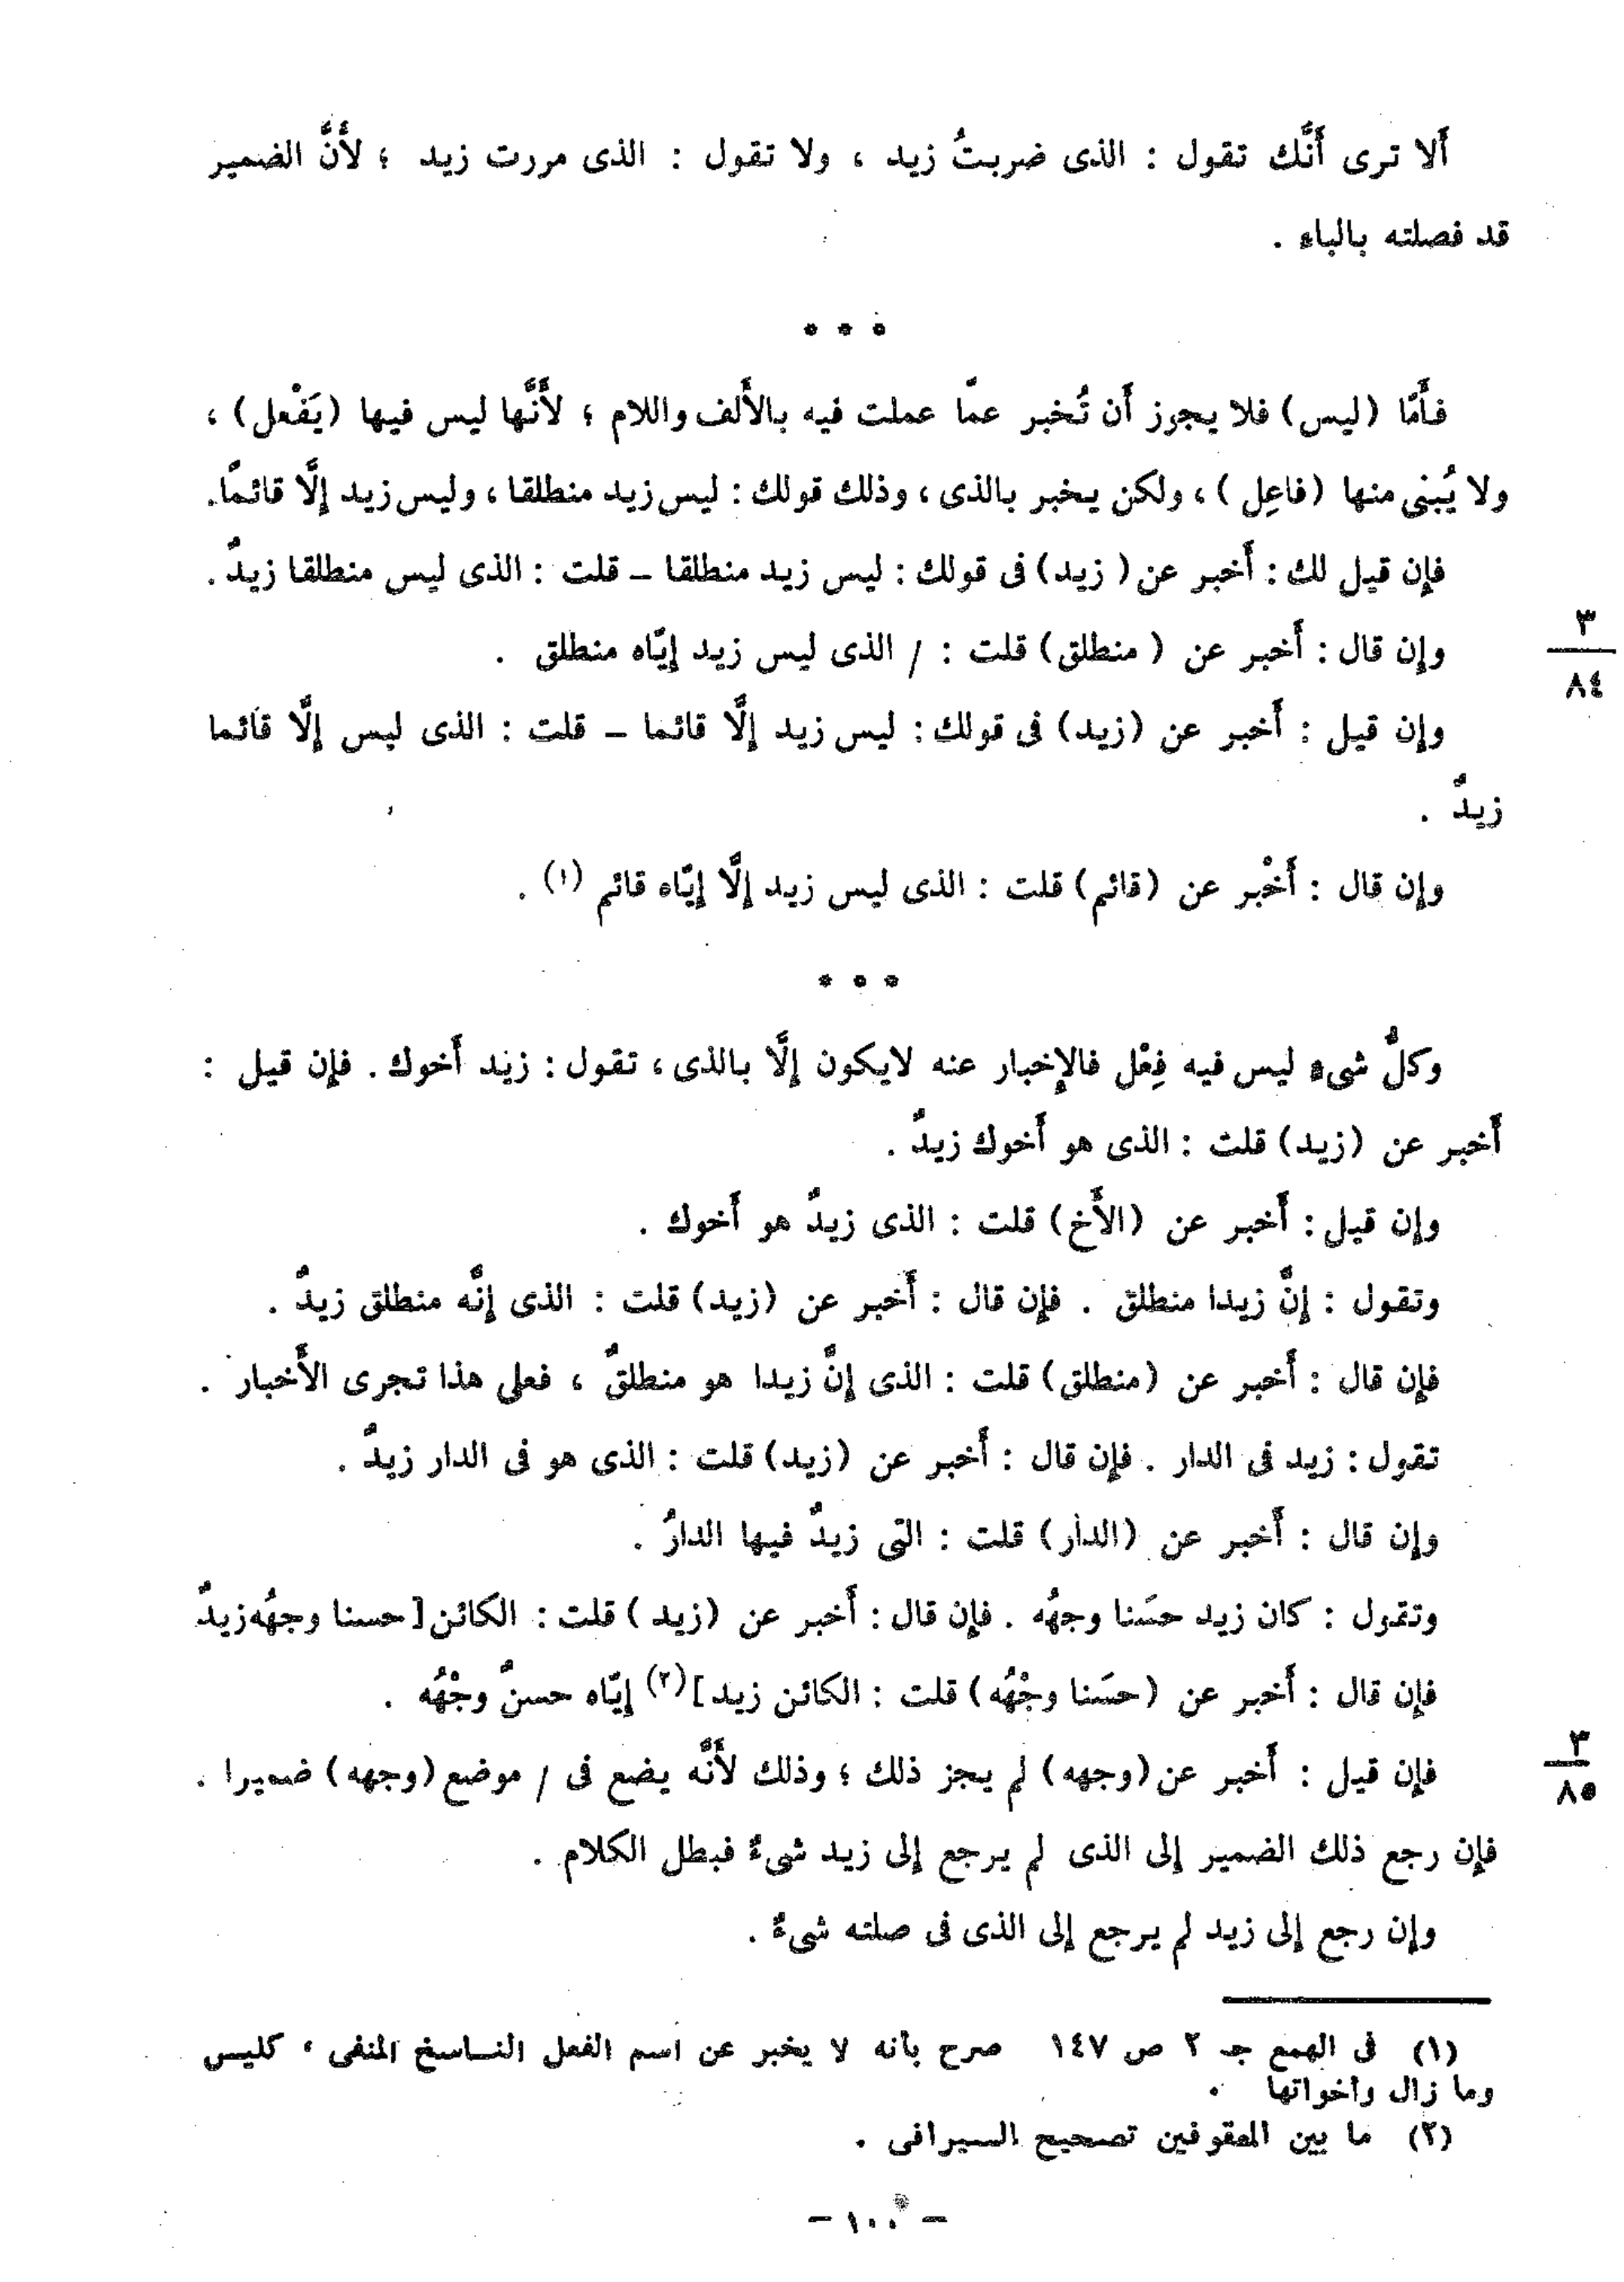 ألا ترى أَنَّك تقول : الذى ضربتُ زيد ، ولا تقول : الذى مررت زيد ؛ لأَنَّ الضمير
قد فصلته بالباء .
* * *
فأَمّا (ليس) فلا يجوز أَن تُخبر عمّا عملت فيه بالأَلف واللام ؛ لأَنَّها ليس فيها (يَفْعل) ،
ولا يُبنى منها (فاعِل) ، ولكن يخبر بالذى ، وذلك قولك : ليس زيد منطلقا ، وليس زيد إلَّا قائمًا.
فإن قيل لك : أَخبر عن ( زيد) فى قولك : ليس زيد منطلقا – قلت : الذى ليس منطلقا زيدٌ .
وإن قال : أَخبر عن ( منطلق) قلت : / الذى ليس زيد إيّاه منطلق .
٣
٨٤
وإن قيل : أَخبر عن (زيد) فى قولك : ليس زيد إلَّا قائما – قلت : الذى ليس إلَّا قائما
زيدٌ .
وإن قال : أَخْبر عن (قائم) قلت : الذى ليس زيد إلَّا إيّاه قائم (١) .
* * *
وكلُّ شىء ليس فيه فِعْل فالإخبار عنه لايكون إلَّا بالذى ، تقول : زيد أَخوك . فإن قيل :
أَخبر عن (زيد) قلت : الذى هو أَخوك زيدٌ .
وإن قيل : أَخبر عن (الأَخ) قلت : الذى زيدٌ هو أَخوك .
وتقول : إنَّ زيدا منطلق . فإن قال : أَخبر عن (زيد) قلت : الذى إنَّه منطلق زيدٌ .
فإن قال : أَخبر عن (منطلق) قلت : الذى إنَّ زيدا هو منطلقٌ ، فعلى هذا تجرى الأَخبار .
تقول : زيد فى الدار . فإن قال : أَخبر عن (زيد) قلت : الذى هو فى الدار زيدٌ .
وإن قال : أَخبر عن (الدار) قلت : التى زيدٌ فيها الدارُ .
وتقول : كان زيد حسَنا وجهُه . فإن قال : أَخبر عن (زيد ) قلت : الكائن [ حسنا وجهُه زيدٌ
فإن قال : أَخبر عن (حسَنا وجْهُه) قلت : الكائن زيد ](٢) إيّاه حسنٌ وجْهُه .
فإن قيل : أَخبر عن (وجهه) لم يجز ذلك ؛ وذلك لأَنَّه يضع فى / موضع (وجهه) ضميرا .
٣
٨٥
فإن رجع ذلك الضمير إلى الذى لم يرجع إلى زيد شىءٌ فبطل الكلام .
وإن رجع إلى زيد لم يرجع إلى الذى فى صلته شىءٌ .
(١) فى الهمع جـ ٢ ص ١٤٧ صرح بأنه لا يخبر عن اسم الفعل الناسخ المنفى ، كليس
وما زال وأخواتها .
(٢) ما بين المعقوفين تصحيح السيرافى .
– ١٠٠ –